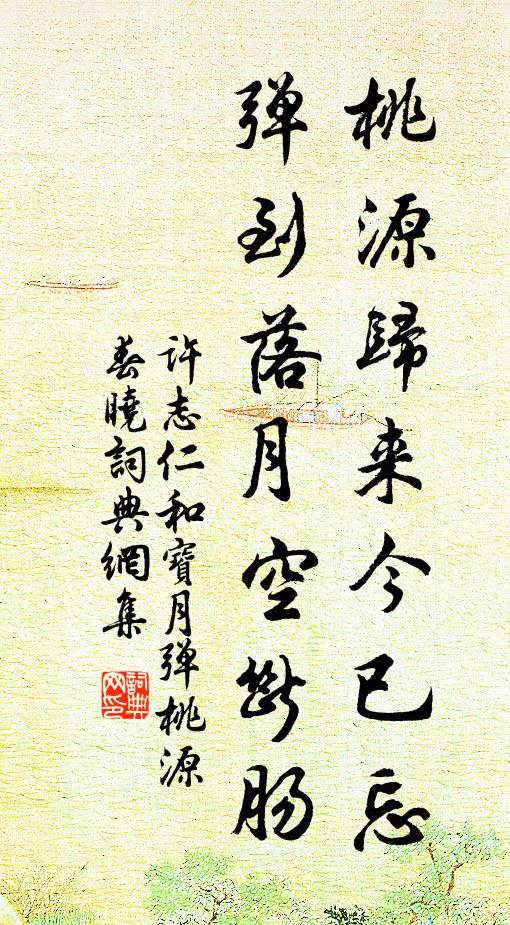 桃源歸来今已忘
弹到落月空斷肠
许志仁和寶月弹桃源
春曉詞典網集
詞典网印